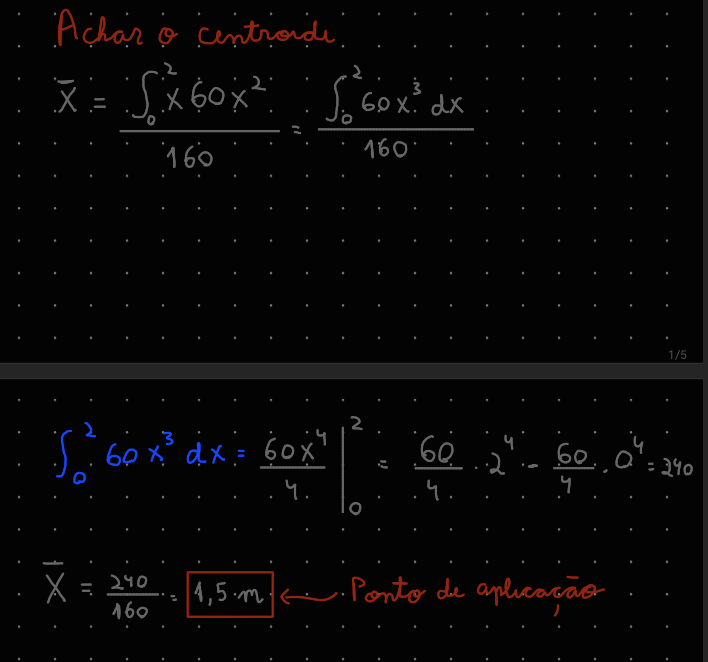 Achar o centroide
X̄ = ∫₀² x 60x² / 160 = ∫₀² 60x³ dx / 160
1/5
∫₀² 60x³ dx = 60x⁴/4 |₀² = 60/4 · 2⁴ - 60/4 · 0⁴ = 240
X̄ = 240/160 = 1,5 m ← Ponto de aplicação